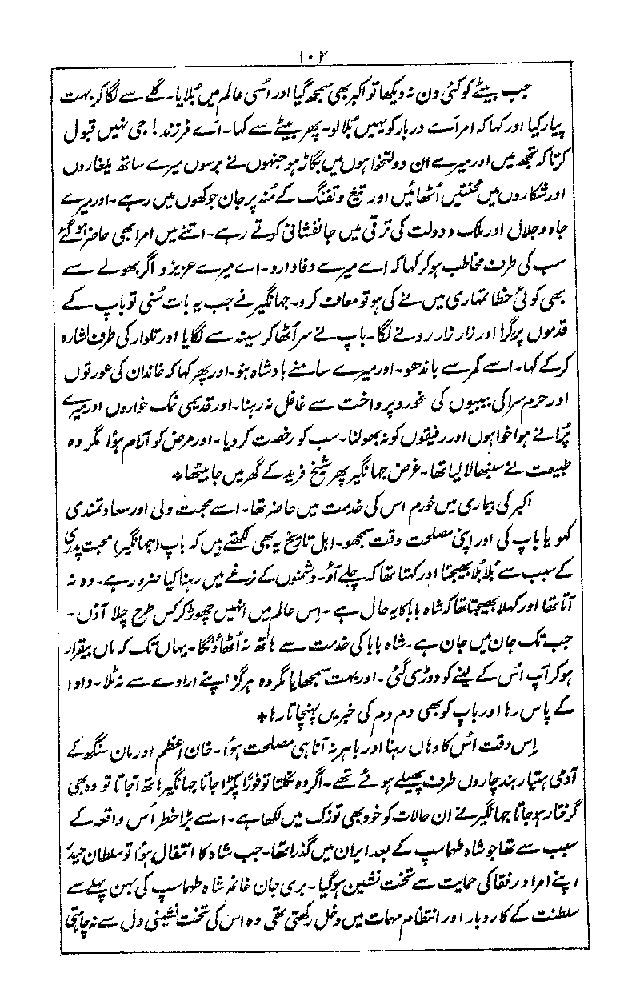 ۱۰۲
جب بیٹے کو کئی دن نہ دیکھا تو اکبر بھی سمجھ گیا اور اسی عالم میں بلایا۔ گلے سے لگا کر بہت
پیار کیا اور کہا کہ امراے دربار کو یہیں بلا لو۔ پھر بیٹے سے کہا۔ اے فرزند! جی نہیں قبول
کرتا کہ تجھ میں اور میرے ان دولتخواہوں میں بگاڑ ہو جنہوں نے برسوں میرے ساتھ یلغاروں
اور شکاروں میں محنتیں اٹھائیں اور تیغ و تفنگ کے منہ پر جان جوکھوں میں رہے۔ اور میرے
جاہ و جلال اور ملک و دولت کی ترقی میں جانفشانی کرتے رہے۔ اتنے میں امرا بھی حاضر ہو گئے
سب کی طرف مخاطب ہو کر کہا کہ اے میرے وفادارو۔ اے میرے عزیزو اگر بھولے سے
بھی کوئی خطا تمہاری میں نے کی ہو تو معاف کرو۔ جہانگیر نے جب یہ بات سنی تو باپ کے
قدموں پر گرا اور زار زار رونے لگا۔ باپ نے سر اٹھا کر سینہ سے لگایا اور تلوار کی طرف اشارہ
کرکے کہا۔ اسے کمر سے باندھو۔ اور میرے سامنے بادشاہ ہو۔ اور پھر کہا کہ خاندان کی عورتوں
اور حرم سرا کی بیبیوں کی غور و پرداخت سے غافل نہ رہنا۔ اور قدیمی نمک خواروں اور میرے
پرانے ہواخواہوں اور رفیقوں کو نہ بھولنا۔ سب کو رخصت کر دیا۔ اور مرض کو آرام ہوا مگر وہ
طبیعت نے سنبھالا لیا تھا۔ غرض جہانگیر پھر شیخ فرید کے گھر میں جا بیٹھا*
اکبر کی بیماری میں خورم اس کی خدمت میں حاضر تھا۔ اسے محبت دلی اور سعادتمندی
کہو یا باپ کی اور اپنی مصلحت وقت سمجھو۔ اہل تاریخ یہ بھی لکھتے ہیں کہ باپ (جہانگیر) محبت پدری
کے سبب سے بلا بلا بھیجتا اور کہتا تھا کہ چلے آؤ۔ دشمنوں کے نرغے میں رہنا کیا ضرور ہے۔ وہ نہ
آتا تھا اور کہلا بھیجتا تھا کہ شاہ بابا کا یہ حال ہے۔ اس عالم میں انہیں چھوڑ کر کس طرح چلا آؤں۔
جب تک جان میں جان ہے۔ شاہ بابا کی خدمت سے ہاتھ نہ اٹھاؤنگا۔ یہاں تک کہ ماں بیقرار
ہو کر آپ اس کے لینے کو دوڑی گئی۔ اور بہت سمجھایا مگر وہ ہرگز اپنے ارادے سے نہ ٹلا۔ دادا
کے پاس رہا اور باپ کو بھی دم دم کی خبریں پہنچاتا رہا*
اس وقت اس کا وہاں رہنا اور باہر نہ آنا ہی مصلحت ہوا۔ خان اعظم اور مان سنگھ کے
آدمی ہتیار بند چاروں طرف پھیلے ہوئے تھے۔ اگر وہ نکلتا تو فوراً پکڑا جاتا جہانگیر ہاتھ آ جاتا تو وہ بھی
گرفتار ہو جاتا جہانگیر نے ان حالات کو خود بھی توزک میں لکھا ہے۔ اسے بڑا خطر اس واقعہ کے
سبب سے تھا جو شاہ طہماسپ کے بعد ایران میں گذرا تھا۔ جب شاہ کا انتقال ہوا تو سلطان حیدر
اپنے امرا و رفقا کی حمایت سے تخت نشین ہو گیا۔ پری جان خانم شاہ طہماسپ کی بہن پہلے سے
سلطنت کے کاروبار اور انتظام مہمات میں دخل رکھتی تھی وہ اس کی تخت نشینی دل سے نہ چاہتی